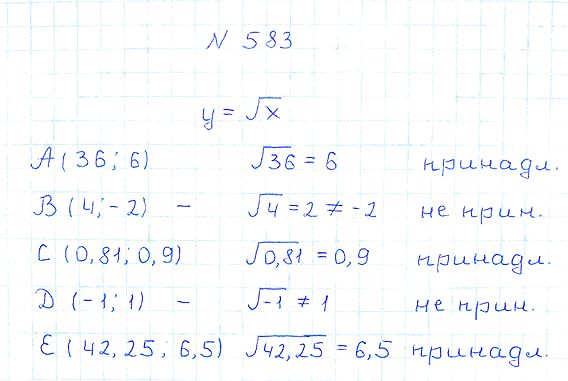 N 583
y = √x
A (36; 6) √36 = 6 принадл.
B (4; -2) - √4 = 2 ≠ -2 не прин.
C (0,81; 0,9) √0,81 = 0,9 принадл.
D (-1; 1) - √-1 ≠ 1 не прин.
E (42,25; 6,5) √42,25 = 6,5 принадл.